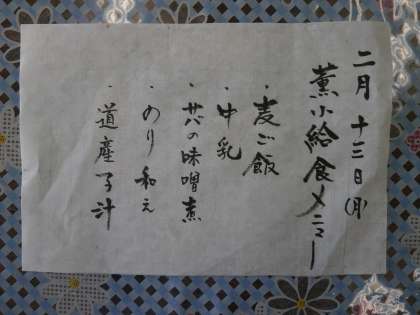 二月十三日(月)
薫小給食メニュー
・麦ご飯
・牛乳
・サバの味噌煮
・のり和え
・道産子汁